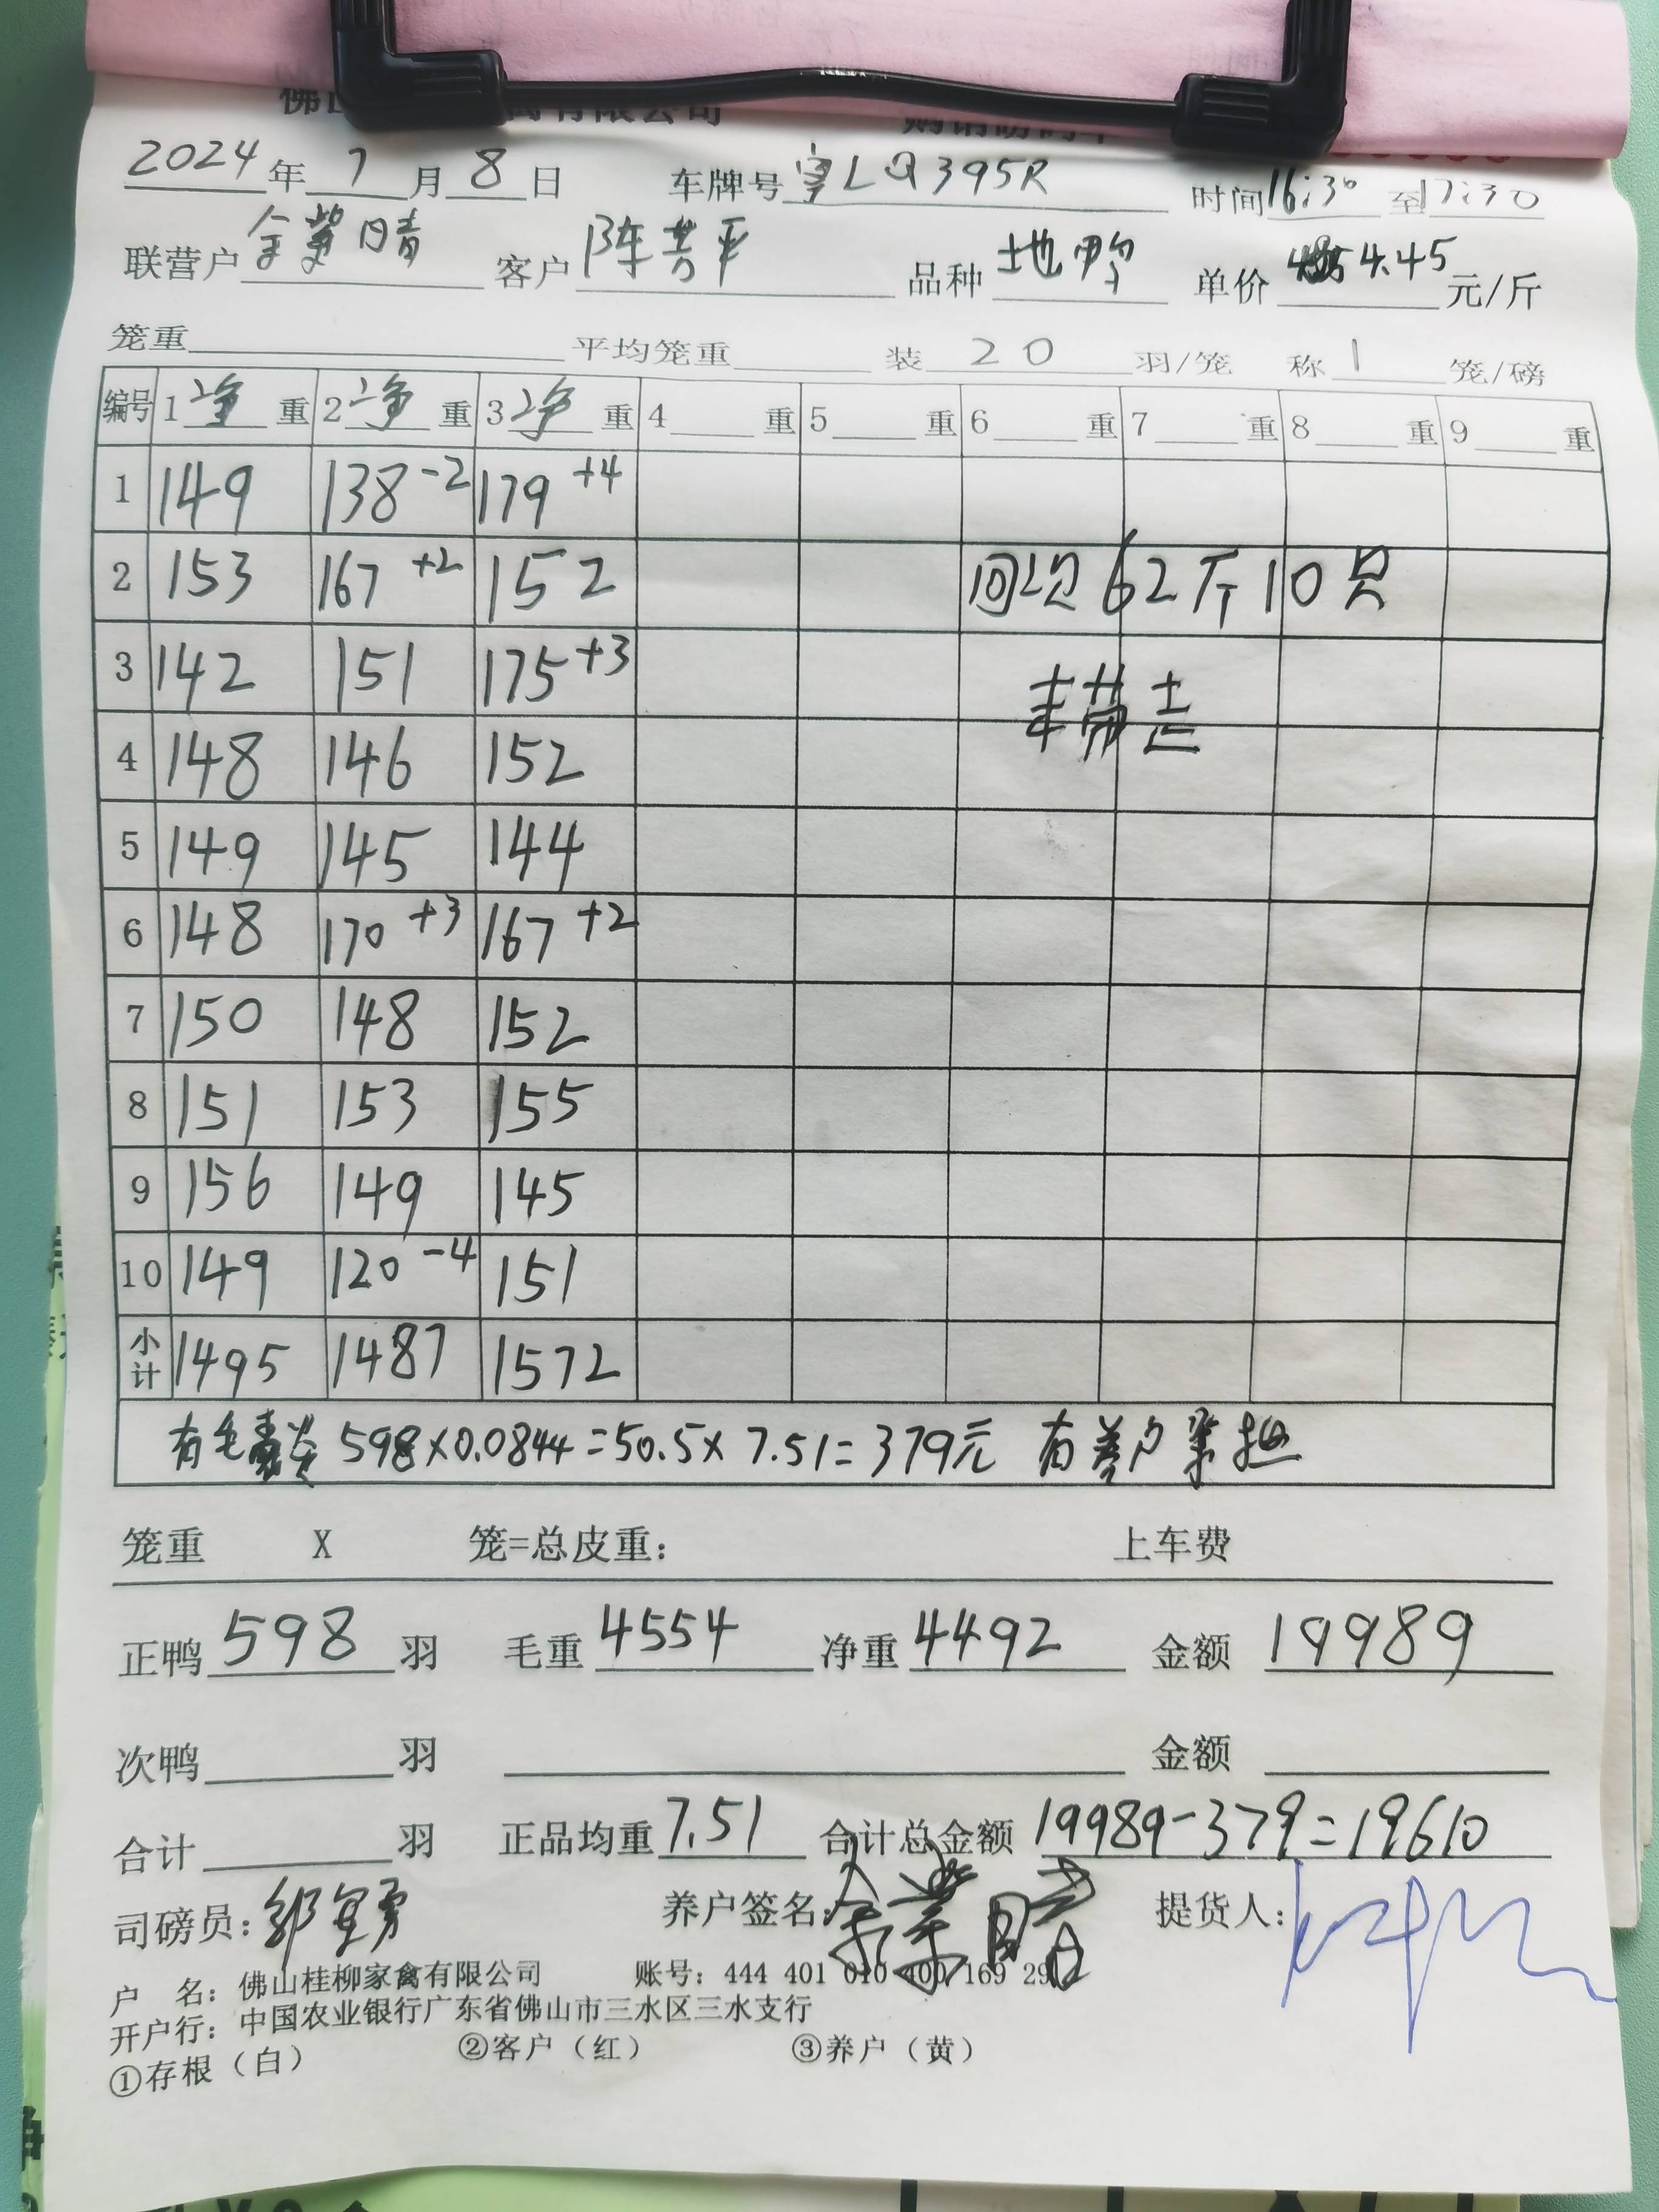 佛山 禽有限公司
2024年7月8日 车牌号粤LQ395R 时间16:30至17:30
联营户 客户陈芳平 品种 地鸭 单价 4.45元/斤
笼重 平均笼重 装 20 羽/笼 称 1 笼/磅
编号 1净重 2净重 3净重 4 重 5 重 6 重 7 重 8 重 9 重
1 149 138-2 179+4
2 153 167+2 152 回 62斤10只
3 142 151 175+3
4 148 146 152
5 149 145 144
6 148 170+3 167+2
7 150 148 152
8 151 153 155
9 156 149 145
10 149 120-4 151
小计 1495 1487 1572
有毛 598×0.0844=50.5×7.51=379元 有养户承担
笼重 X 笼=总皮重: 上车费
正鸭 598 羽 毛重 4554 净重 4492 金额 19989
次鸭 羽 金额
合计 羽 正品均重 7.51 合计总金额 19989-379=19610
司磅员: 养户签名: 提货人:
户 名: 佛山桂柳家禽有限公司 账号: 444 401 010 400 169
开户行: 中国农业银行广东省佛山市三水区三水支行
①存根（白） ②客户（红） ③养户（黄）